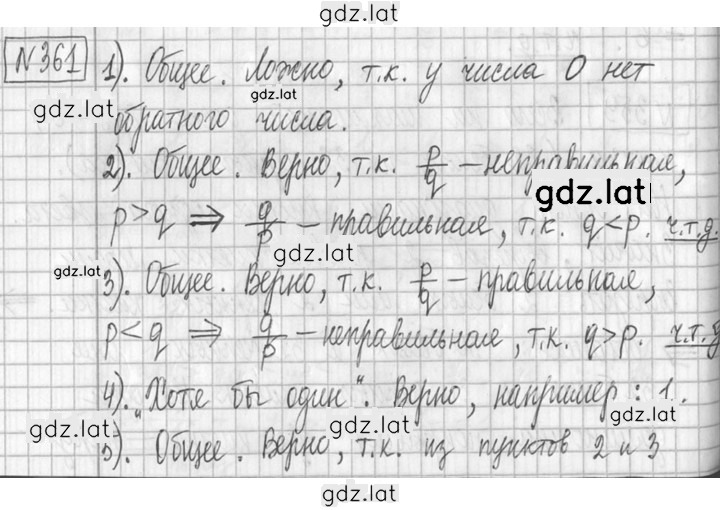 gdz.lat
N 361 1). Общее. Ложно, т.к. у числа 0 нет
gdz.lat
gdz.lat
обратного числа.
2). Общее. Верно, т.к. p/q – неправильная,
gdz.lat
p > q ⇒ q/p – правильная, т.к. q < p. ч.т.д.
gdz.lat
gdz.lat
3). Общее. Верно, т.к. p/q – правильная,
p < q ⇒ q/p – неправильная, т.к. q > p. ч.т.д
gdz.lat
4). "Хотя бы один". Верно, например: 1.
gdz.lat
gdz.lat
5). Общее. Верно, т.к. из пунктов 2 и 3
gdz.lat